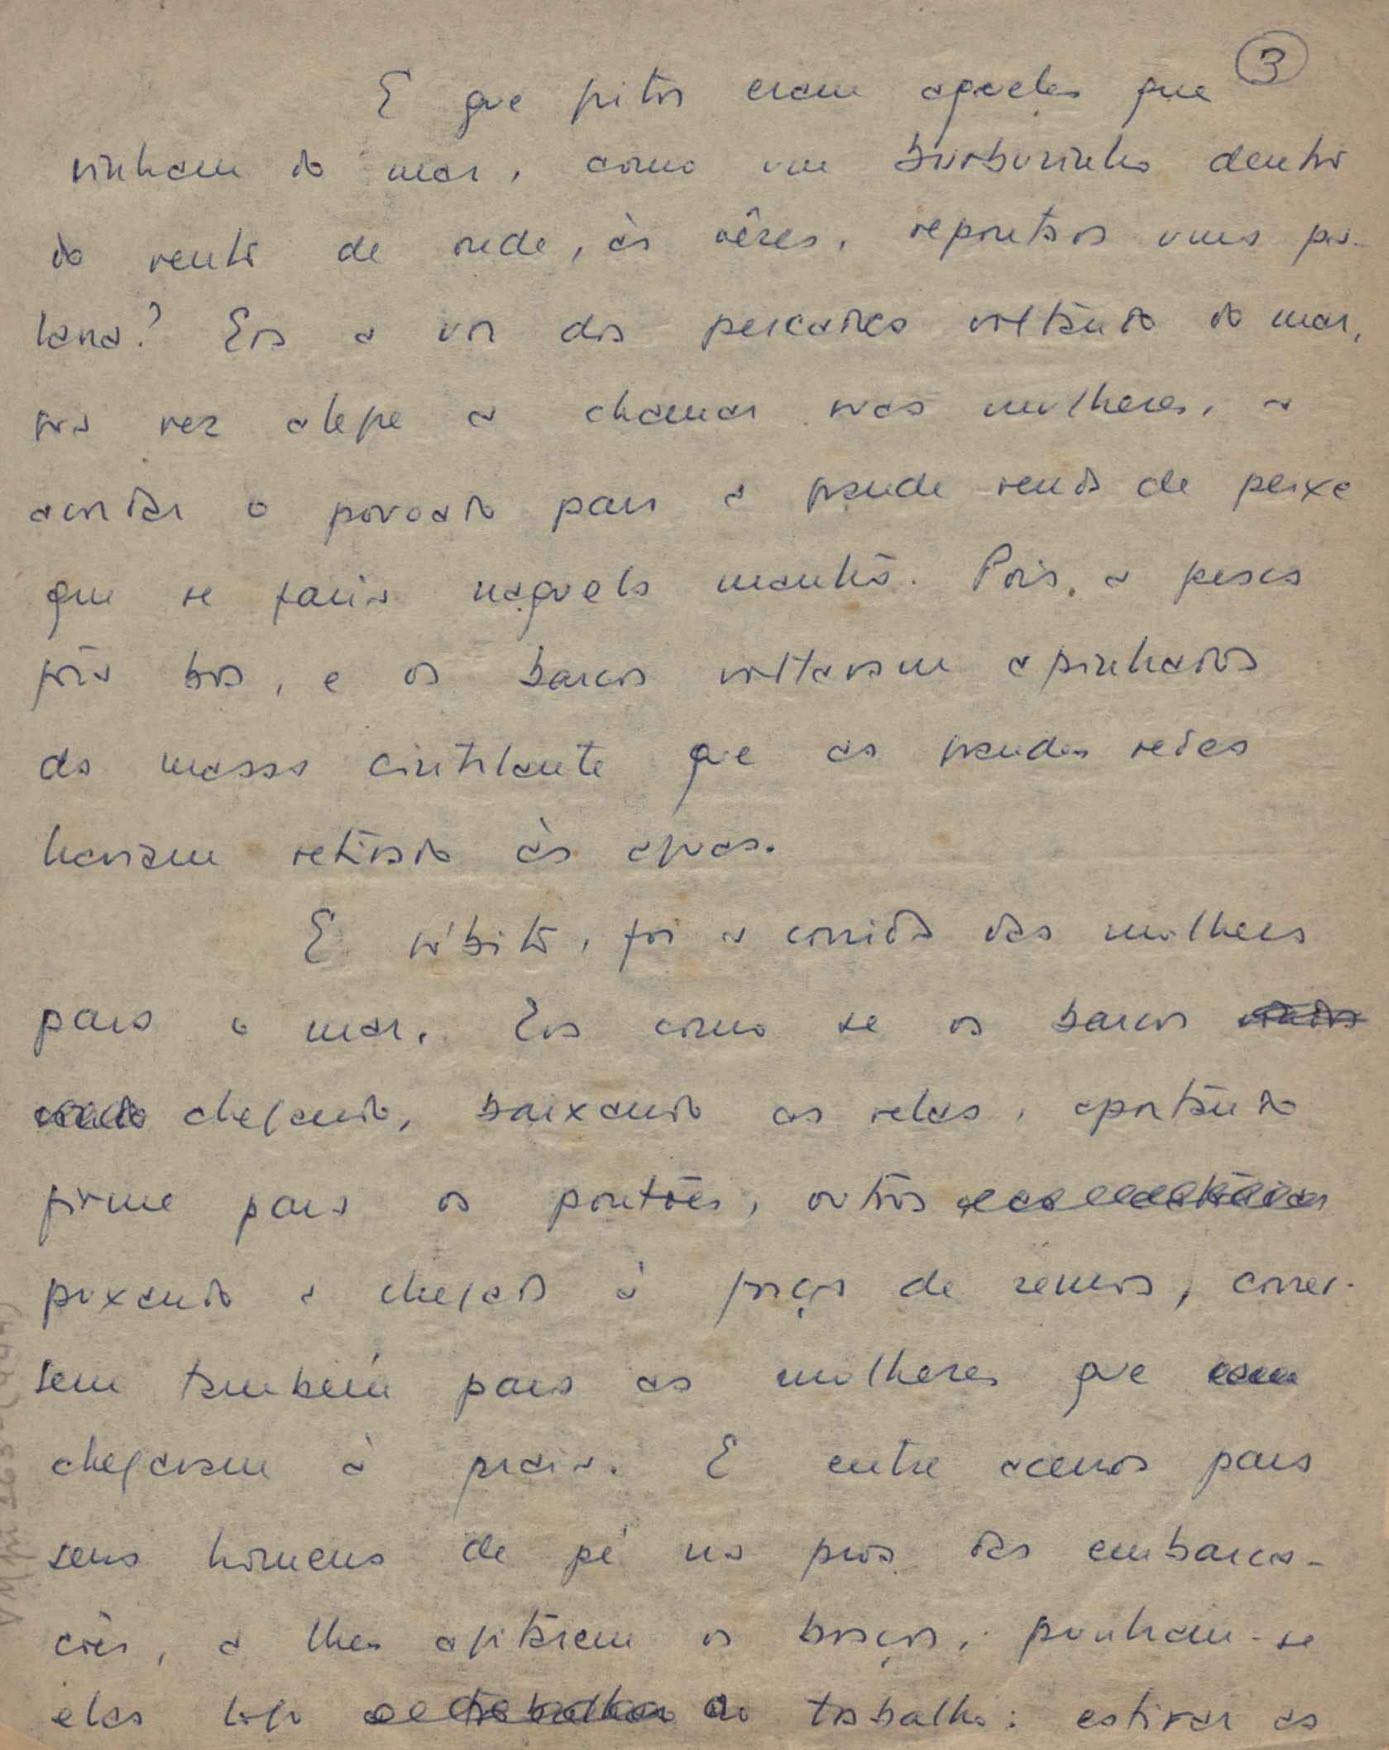 3
E que gritos eram aqueles que
vinham do mar, como um burburinho dentro
do vento de onde, às vêzes, repontava uma ga-
lana? Era a voz dos pescadores voltando do mar,
voz alegre a chamar suas mulheres, a
acordar o povoado para a grande venda de peixe
que se faria naquela manhã. Pois, a pesca
fôra boa, e os barcos voltavam apinhados
da massa cintilante que as grandes redes
haviam retirado às águas.
E súbito, foi a corrida das mulheres
para o mar. Era como se os barcos
chegando, baixando as velas, apontando
firme para os pontões, outros
puxando a chegada à força de remos, corres-
sem também para as mulheres que
chegavam à praia. E entre acenos para
seus homens de pé na proa das embarca-
ções, a lhes agitarem os braços, punham-se
elas logo ao trabalho: estirar as